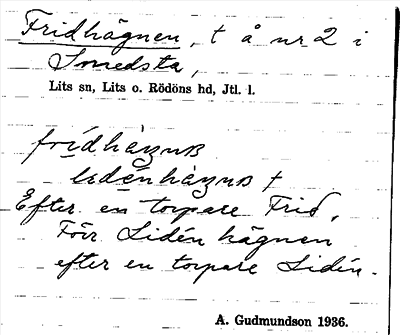 Fridhägnen, t å nr 2 i
Smedsta,
Lits sn, Lits o. Rödöns hd, Jtl. l.
Efter en torpare Frid,
Förr Lidén hägnen
efter en torpare Lidén.
A. Gudmundson 1936.